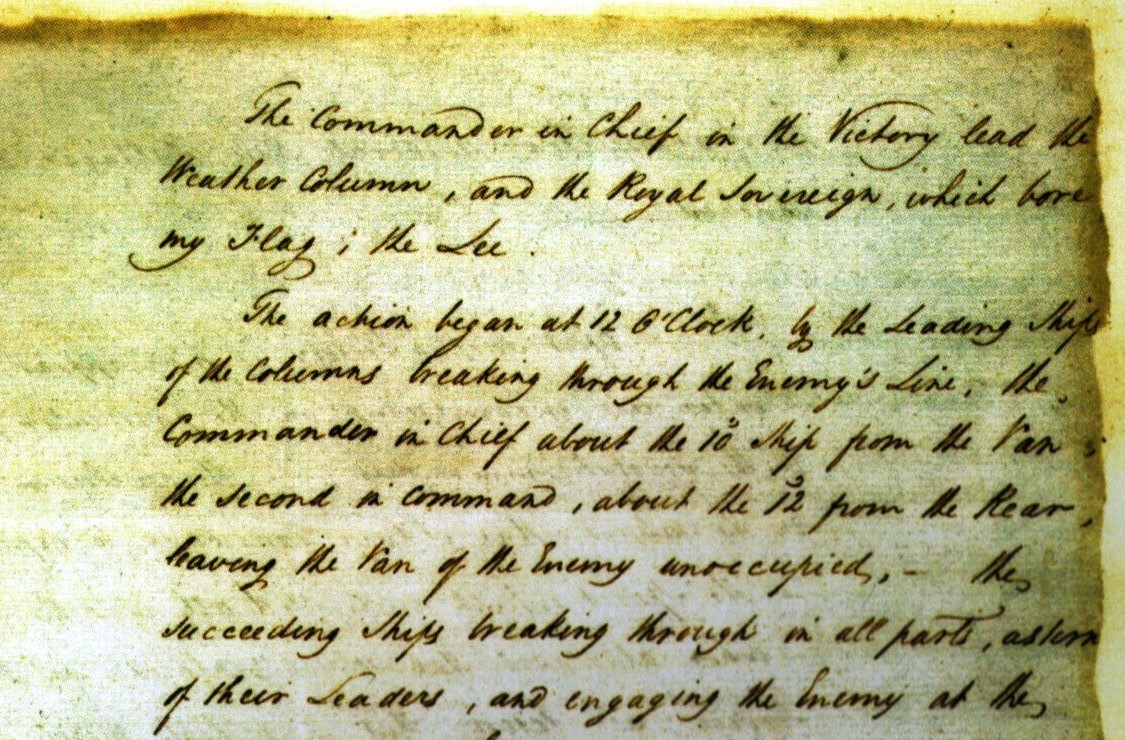 The Commander in Chief in the Victory lead the
Weather Column, and the Royal Sovereign, which bore
my Flag; the Lee.
The action began at 12 O'Clock, by the Leading Ships
of the Columns breaking through the Enemy's Line, the
Commander in Chief about the 10th Ship from the Van;
the second in command, about the 12 from the Rear,
leaving the Van of the Enemy unoccupied, – the
succeeding Ships breaking through in all parts, astern
of their Leaders, and engaging the Enemy at the